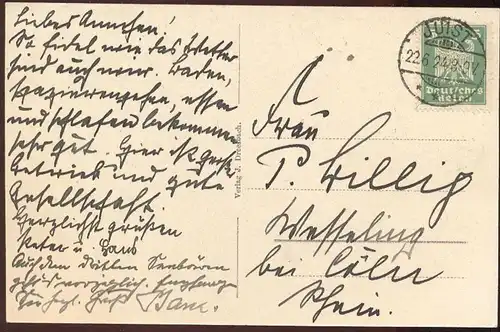 Liebes Annchen!
So fidel wie das Wetter
sind auch wir. Baden,
spazierengehen, essen
und schlafen bekommen
sehr gut. Hier ist
Betrieb und gute
Gesellschaft.
Herzlichst grüßen
Peter u. Hans
Auf dem
Verlag J. Dreesbach.
JUIST
22.6.24
Deutsches
Reich
Frau
P. Billig
Wesseling
bei Cöln
Rhein.